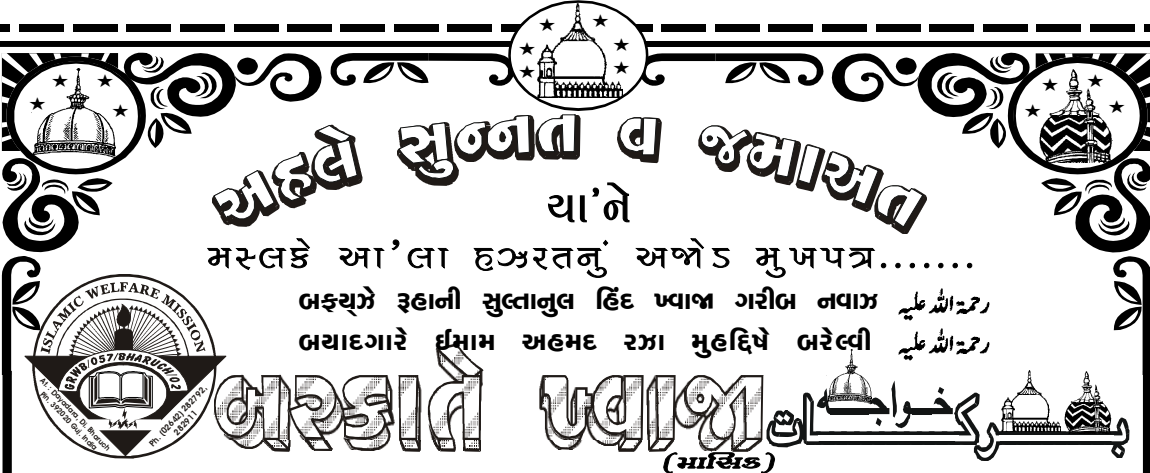 અહલે સુન્નત વ જમાઅત
યા'ને
મસ્લકે આ'લા હઝરતનું અજોડ મુખપત્ર.......
બફયઝે રૂહાની સુલ્તાનુલ હિંદ ખ્વાજા ગરીબ નવાઝ رحمۃ اللہ علیہ
બયાદગારે ઈમામ અહમદ રઝા મુહદ્દિષે બરેલ્વી رحمۃ اللہ علیہ
ISLAMIC WELFARE MISSION
GRWB/057/BHARUCH/02
At. : Dayadara, Di. Bharuch
Pin. 392020 Guj. India
Ph. : (02642) 282792,
282911
બરકાતે ખ્વાજા بركات خواجہ
(માસિક)